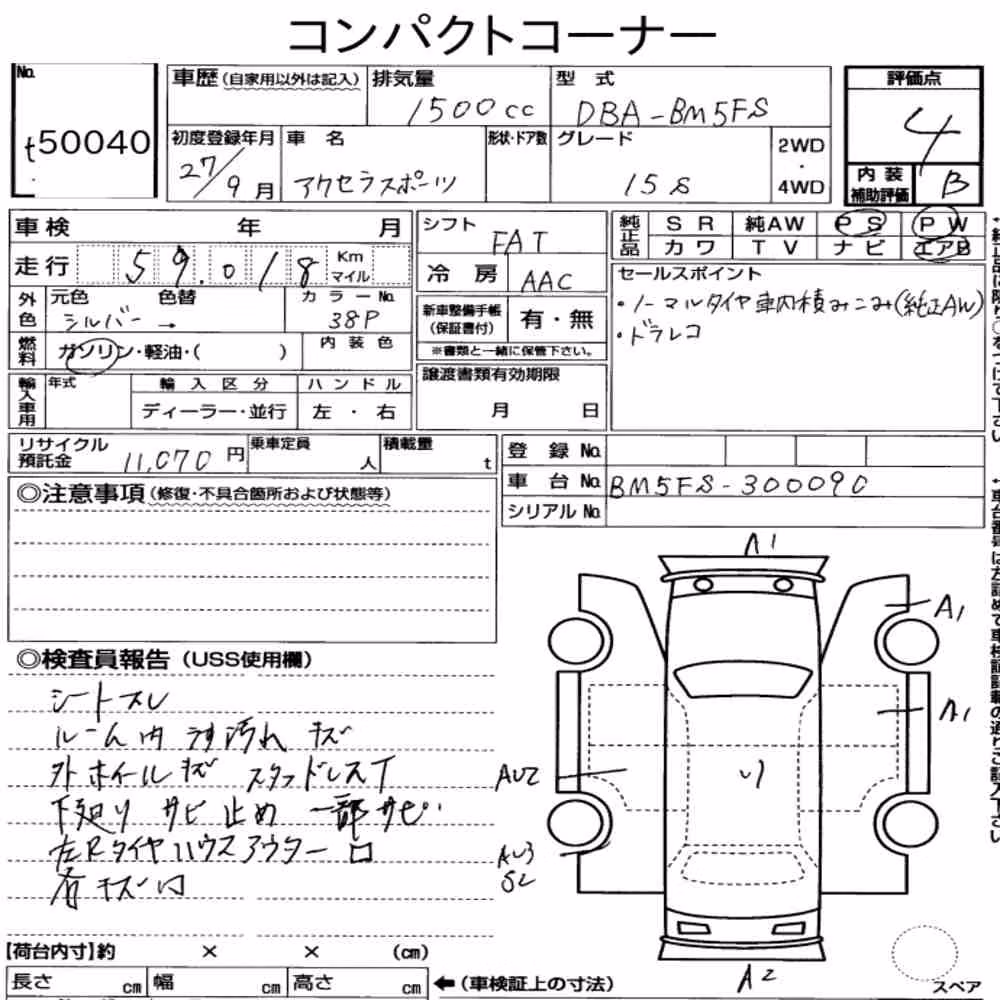 コンパクトコーナー
No. t50040
車歴 (自家用以外は記入) 排気量 1500cc 型式 DBA-BM5FS
評価点 4
初度登録年月 27/9月 車名 アクセラスポーツ 形状・ドア数 グレード 15S 2WD・4WD
内装補助評価 B
車検 年 月
シフト FAT
純正品 SR 純AW PS PW
カワ TV ナビ エアB
走行 59.018 Km マイル
冷房 AAC
セールスポイント
・ノーマルタイヤ車内積みこみ(純正AW)
・ドラレコ
外色 元色 シルバー→ 色替 カラーNo. 38P
新車整備手帳(保証書付) 有・無
※書類と一緒に保管下さい。
燃料 ガソリン・軽油・( ) 内装色
譲渡書類有効期限 月 日
輸入車用 年式 輸入区分 ハンドル
ディーラー・並行 左・右
リサイクル預託金 11,070円 乗車定員 人 積載量 t
登録No.
車台No. BM5FS-300090
シリアルNo.
◎注意事項(修復・不具合箇所および状態等)
◎検査員報告(USS使用欄)
シートスレ
ルーム内 うす汚れ キズ
外ホイールキズ スタッドレスT
下廻り サビ止め 一部サビ
左Rタイヤハウスアウター ロ
A1
A1
A1
AU2
AU3
S2
A2
【荷台内寸】約 × × (cm)
長さ cm 幅 cm 高さ cm
←(車検証上の寸法)
スペア